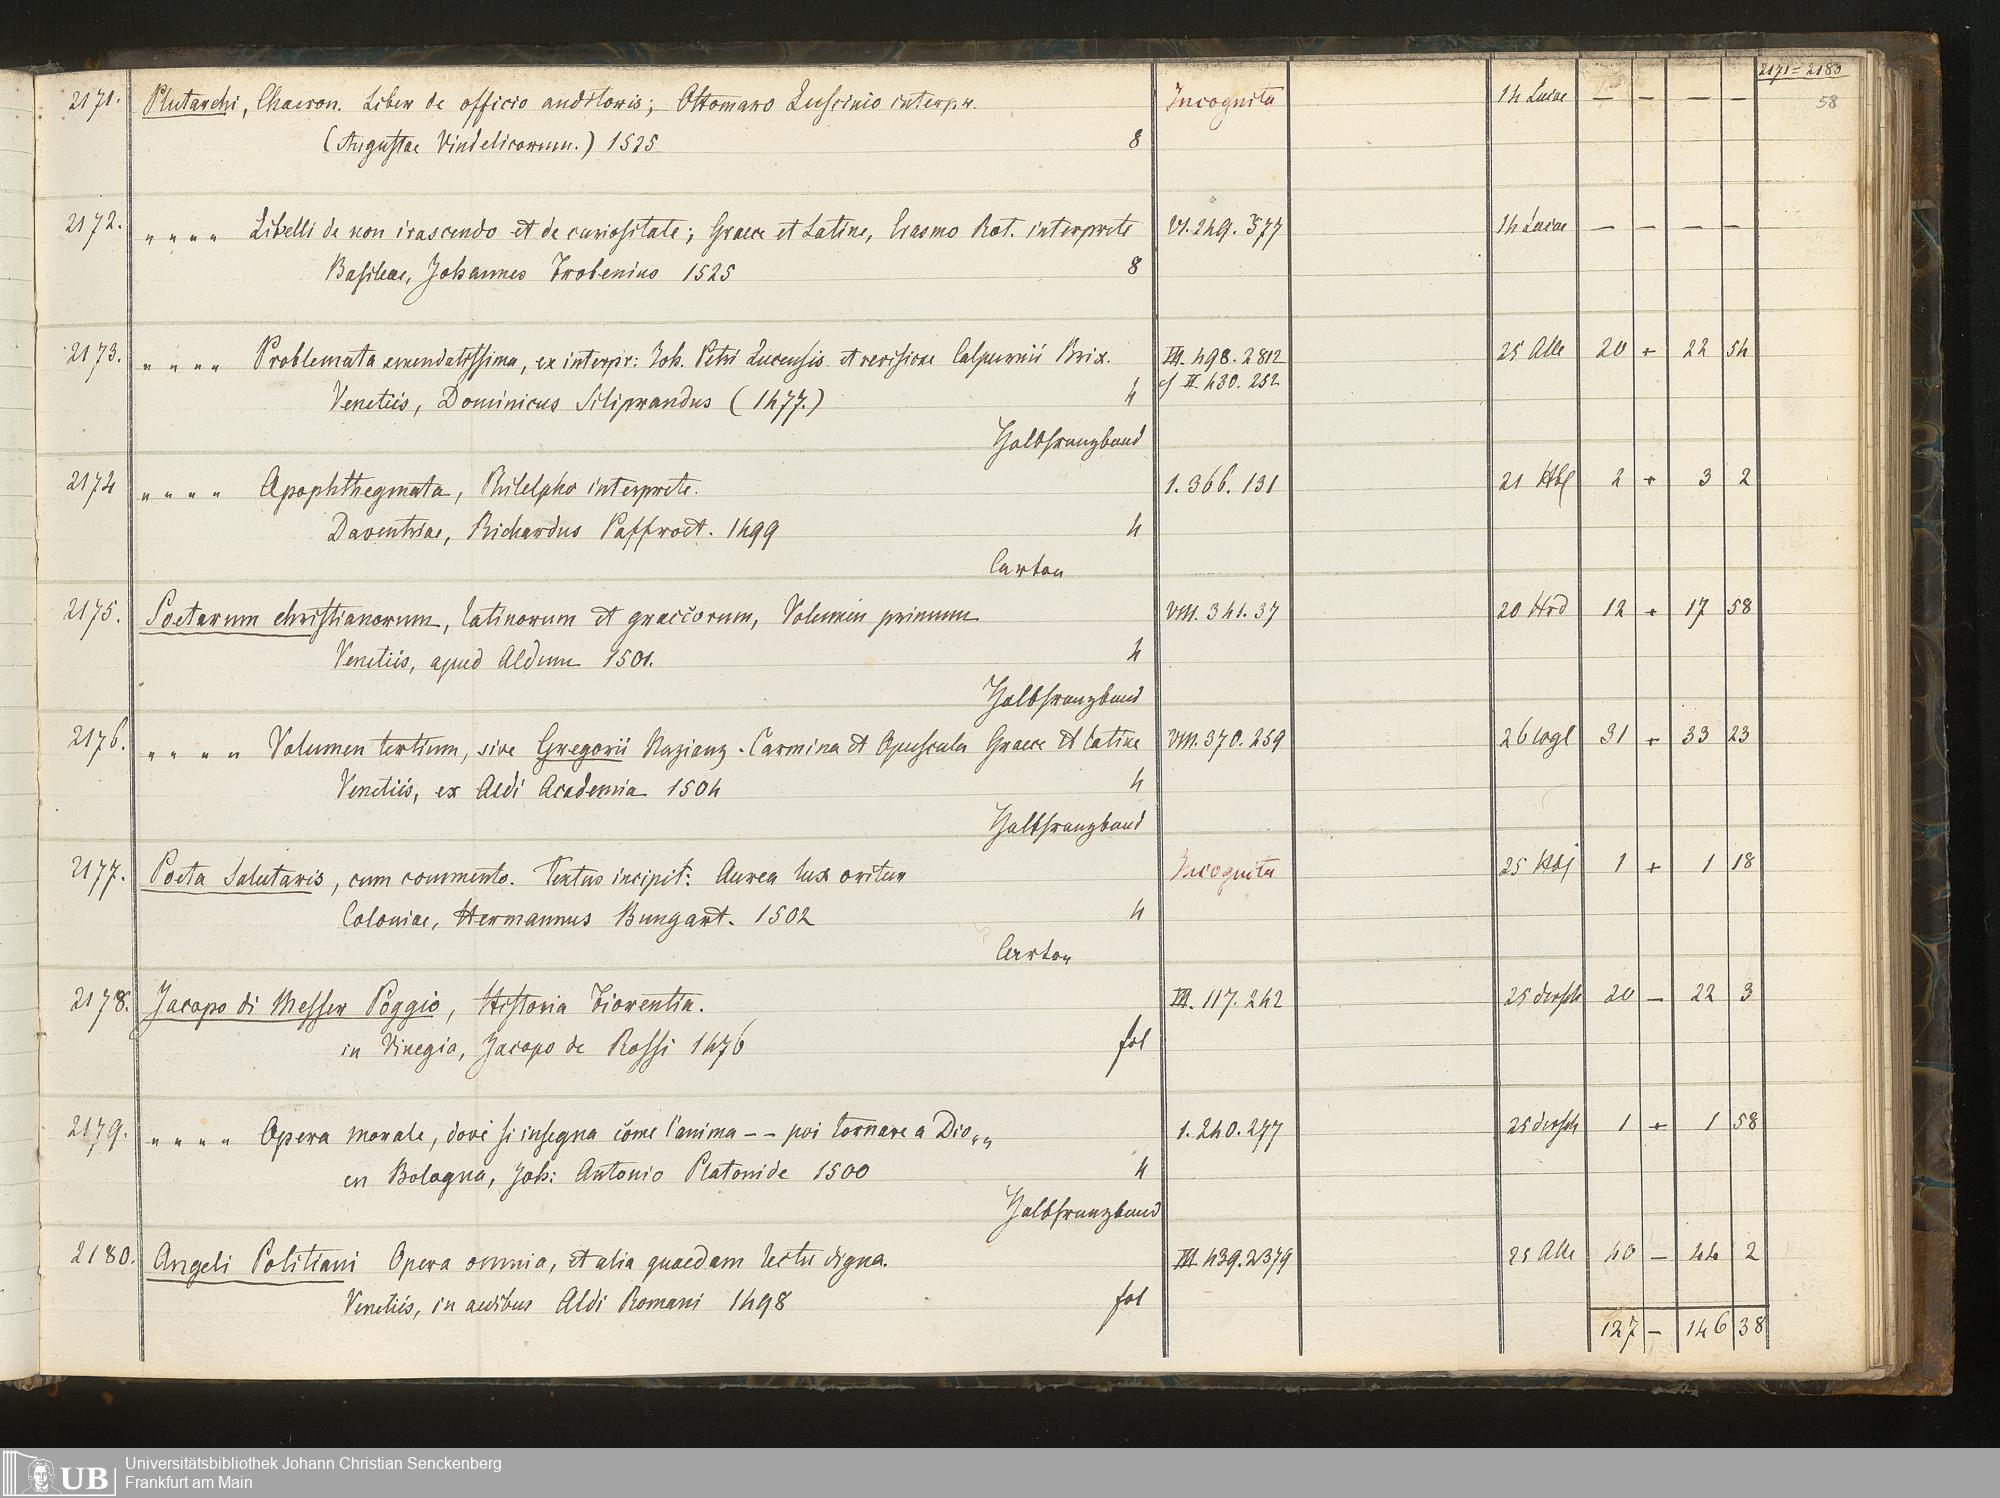 2171-2183
58
2171. Plutarchi, Chaeron. Liber de officio auditoris; Ottomaro Luscinio interpr. Incognita 14 Lucae — — — —
(Augustae Vindelicorum.) 1525 8
2172. " " " " Libelli de non irascendo et de curiositate; Graece et Latine, Erasmo Rot. interprete VI. 249. 577 14 Lucae — — — —
Basileae, Johannes Frobenius 1525 8
2173. " " " " Problemata emendatissima, ex interpr: Joh. Petri Lucensis et revisione Calpurnii Brix. III. 498. 2812 25 Alle 20 + 22 54
cf II. 430. 252
Venetiis, Dominicus Siliprandus (1477.) 4
Halbfranzband
2174 " " " " Apophthegmata, Philelpho interprete. 1. 366. 131 21 2 + 3 2
Daventriae, Richardus Paffroet. 1499 4
Carton
2175. Poetarum christianorum, latinorum et graecorum, Volumen primum VIII. 341. 37 20 Hrd 12 + 17 58
Venetiis, apud Aldum 1501. 4
Halbfranzband
2176. " " " " Volumen tertium, sive Gregorii Nazianz. Carmina et Opuscula Graece et Latine VIII. 370. 259 26 31 + 33 23
Venetiis, ex Aldi Academia 1504 4
Halbfranzband
2177. Poeta Salutaris, cum commento. Textus incipit: Aurea lux oritur Incognita 25 1 + 1 18
Coloniae, Hermannus Bungart. 1502 4
Carton
2178. Jacopo di Messer Poggio, Historia Fiorentia. VII. 117. 242 25 20 — 22 3
in Vinegia, Jacopo de Rossi 1476 fol
2179. " " " " Opera morale, dove si insegna come l'anima — — poi tornare a Dio " " 1. 240. 277 25 1 + 1 58
en Bologna, Joh: Antonio Platonide 1500 4
Halbfranzband
2180. Angeli Politiani Opera omnia, et alia quaedam lectu digna. III 439. 2379 25 Alle 40 — 44 2
Venetiis, in aedibus Aldi Romani 1498 fol
127 — 146 38
UB Universitätsbibliothek Johann Christian Senckenberg
Frankfurt am Main